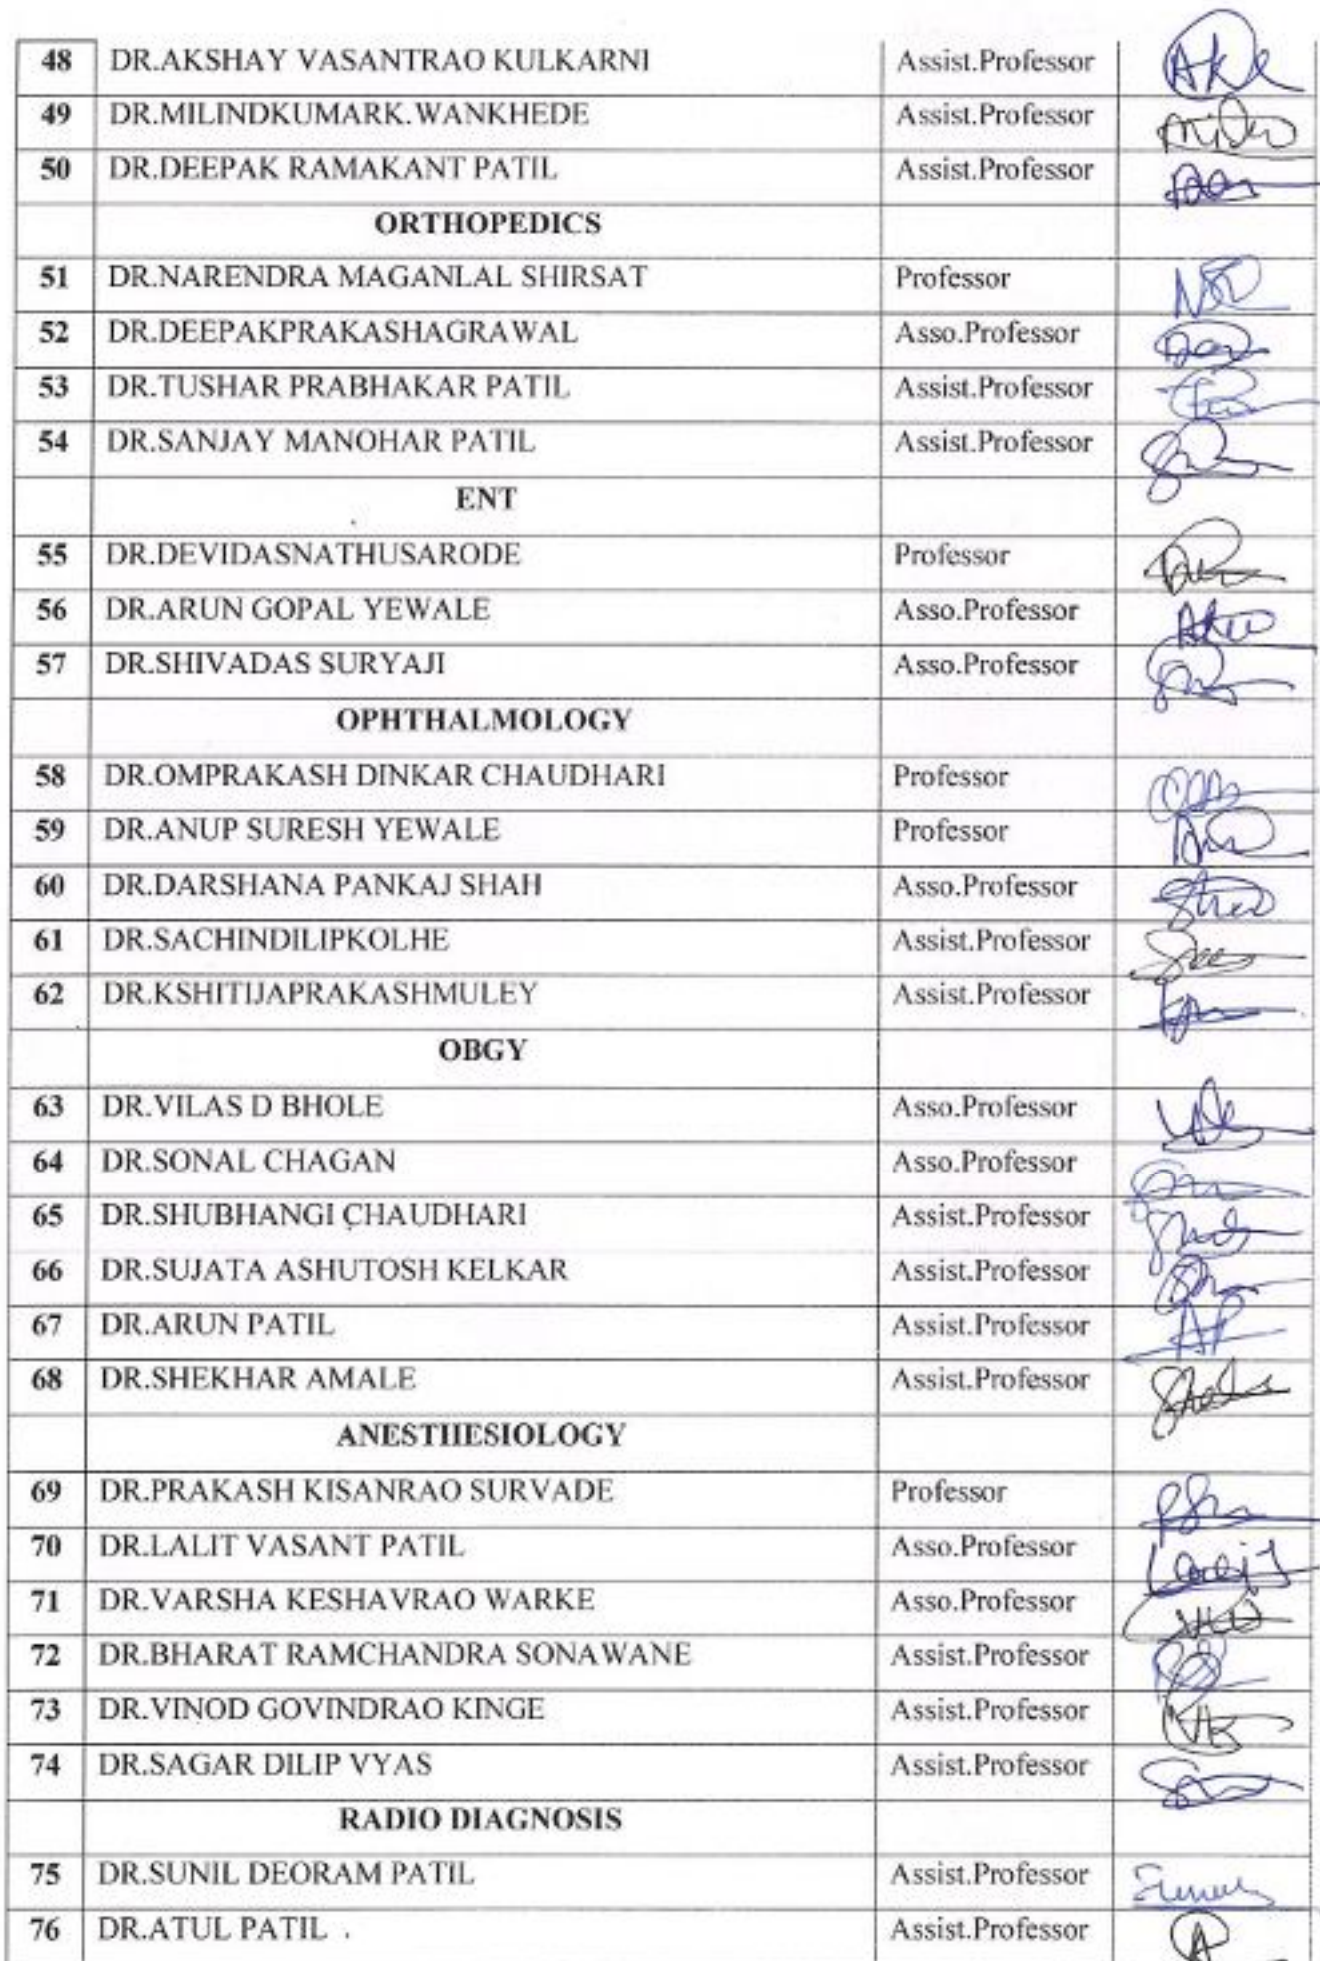 48 DR.AKSHAY VASANTRAO KULKARNI Assist.Professor
49 DR.MILINDKUMARK.WANKHEDE Assist.Professor
50 DR.DEEPAK RAMAKANT PATIL Assist.Professor
ORTHOPEDICS
51 DR.NARENDRA MAGANLAL SHIRSAT Professor
52 DR.DEEPAKPRAKASHAGRAWAL Asso.Professor
53 DR.TUSHAR PRABHAKAR PATIL Assist.Professor
54 DR.SANJAY MANOHAR PATIL Assist.Professor
ENT
55 DR.DEVIDASNATHUSARODE Professor
56 DR.ARUN GOPAL YEWALE Asso.Professor
57 DR.SHIVADAS SURYAJI Asso.Professor
OPHTHALMOLOGY
58 DR.OMPRAKASH DINKAR CHAUDHARI Professor
59 DR.ANUP SURESH YEWALE Professor
60 DR.DARSHANA PANKAJ SHAH Asso.Professor
61 DR.SACHINDILIPKOLHE Assist.Professor
62 DR.KSHITIJAPRAKASHMULEY Assist.Professor
OBGY
63 DR.VILAS D BHOLE Asso.Professor
64 DR.SONAL CHAGAN Asso.Professor
65 DR.SHUBHANGI CHAUDHARI Assist.Professor
66 DR.SUJATA ASHUTOSH KELKAR Assist.Professor
67 DR.ARUN PATIL Assist.Professor
68 DR.SHEKHAR AMALE Assist.Professor
ANESTHESIOLOGY
69 DR.PRAKASH KISANRAO SURVADE Professor
70 DR.LALIT VASANT PATIL Asso.Professor
71 DR.VARSHA KESHAVRAO WARKE Asso.Professor
72 DR.BHARAT RAMCHANDRA SONAWANE Assist.Professor
73 DR.VINOD GOVINDRAO KINGE Assist.Professor
74 DR.SAGAR DILIP VYAS Assist.Professor
RADIO DIAGNOSIS
75 DR.SUNIL DEORAM PATIL Assist.Professor
76 DR.ATUL PATIL Assist.Professor